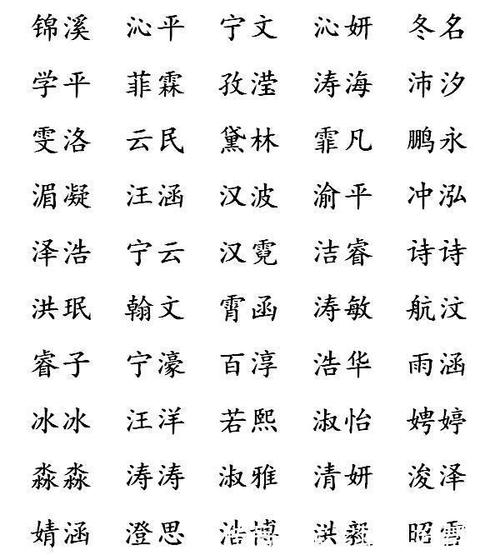 锦溪 沁平 宁文 沁妍 冬名
学平 菲霖 孜滢 涛海 沛汐
雯洛 云民 黛林 霏凡 鹏永
湄凝 汪涵 汉波 渝平 冲泓
泽浩 宁云 汉霓 洁睿 诗诗
洪珉 翰文 霄函 涛敏 航汶
睿子 宁濠 百淳 浩华 雨涵
冰冰 汪洋 若熙 淑怡 娉婷
淼淼 涛涛 淑雅 清妍 浚泽
婧涵 澄思 浩博 洪毅 昭雪